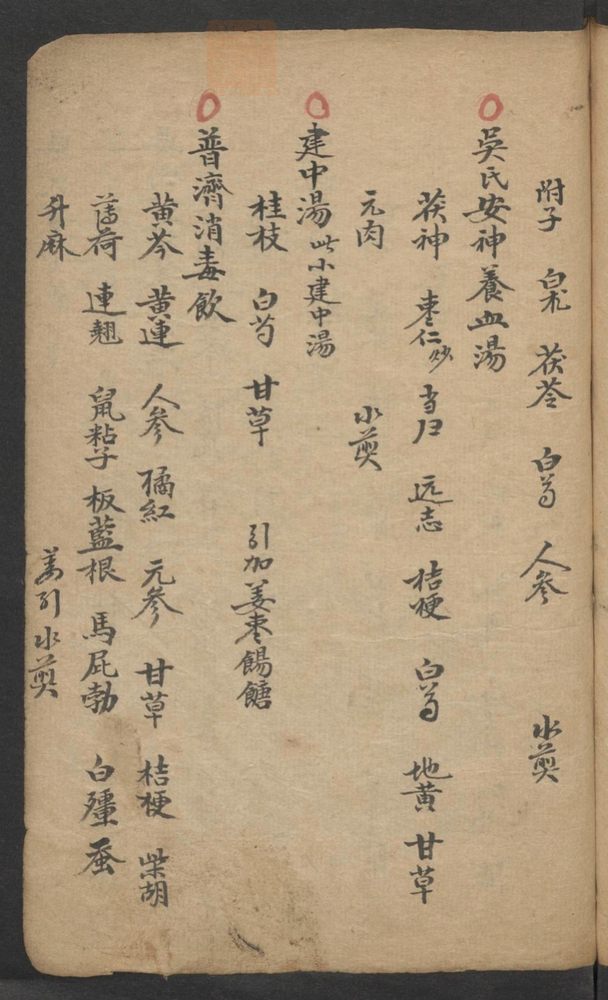 附子 白朮 茯苓 白芍 人参 水煎
吳氏安神養血湯
茯神 枣仁炒 当归 远志 桔梗 白芍 地黄 甘草
元肉 水煎
建中湯 此小建中湯
桂枝 白芍 甘草 引加姜枣餳餹
普濟消毒飲
黄芩 黄連 人参 橘紅 元参 甘草 桔梗 柴胡
薄荷 連翹 鼠粘子 板藍根 馬屁勃 白殭蚕
升麻 姜引水煎